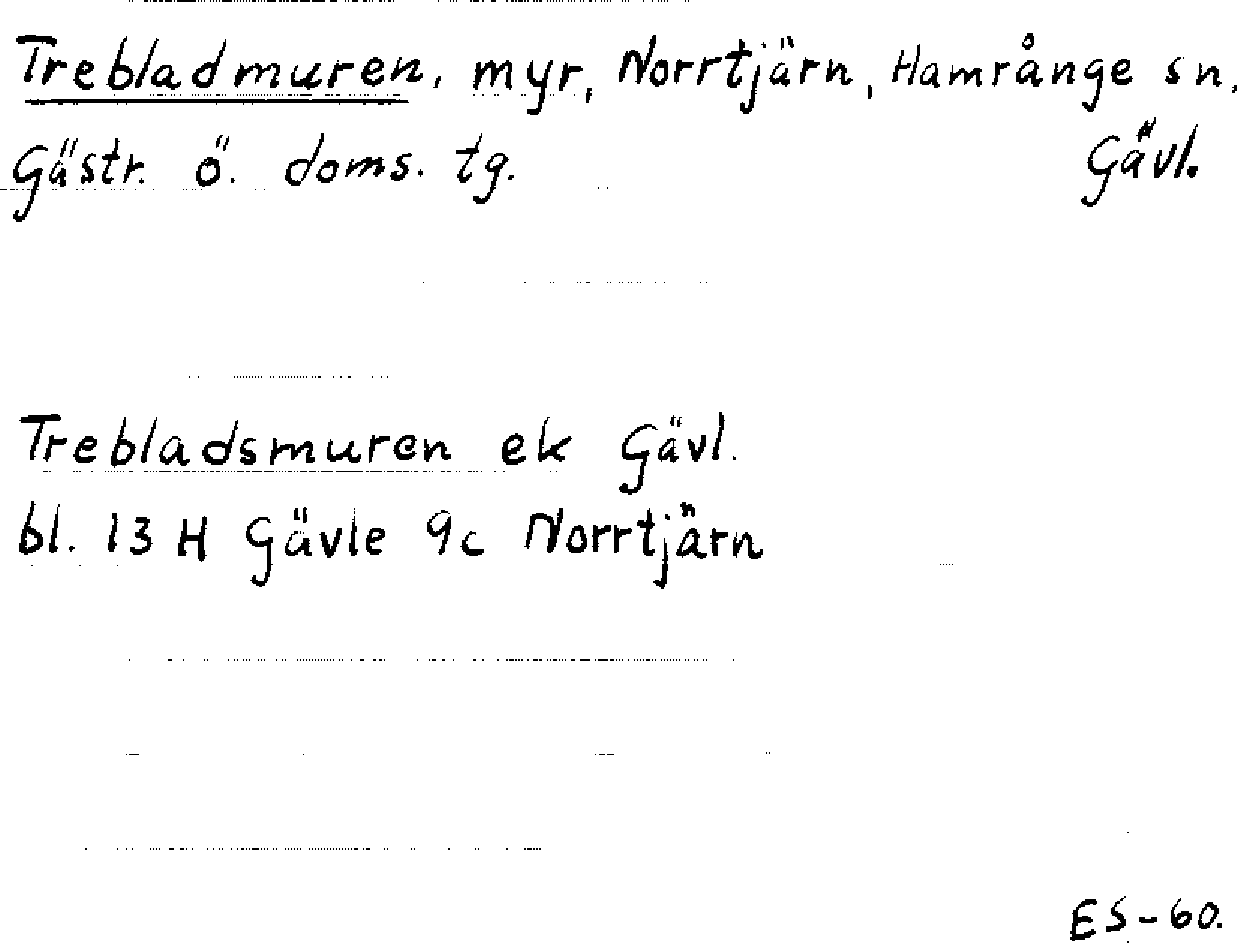 Trebladmuren, myr, Norrtjärn, Hamrånge sn.
Gästr. ö. doms. tg. Gävl.
Trebladsmuren ek Gävl.
bl. 13 H Gävle 9c Norrtjärn
ES-60.